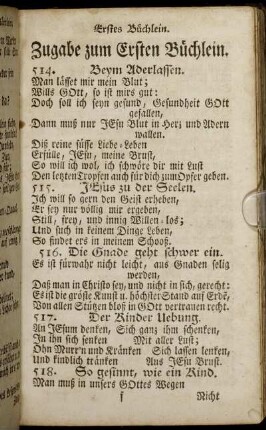 Erstes Büchlein.
Zugabe zum Ersten Büchlein.
514. Beym Aderlassen.
Man lässet mir mein Blut;
Wills GOtt, so ist mirs gut:
Doch soll ich seyn gesund, Gesundheit GOtt
gefallen,
Dann muß nur JEsu Blut in Herz und Adern
wallen.
Diß reine süsse Liebe-Leben
Erfülle, JEsu, meine Brust,
So will ich wol, ich schwöre dir mit Lust
Den letzten Tropfen auch für dich zum Opfer geben.
515. JEsus zu der Seelen.
Ich will so gern den Geist erheben,
Er sey nur völlig mir ergeben,
Still, frey, und innig Willen-los;
Und such in keinem Dinge Leben,
So findet ers in meinem Schooß.
516. Die Gnade geht schwer ein.
Es ist fürwahr nicht leicht, aus Gnaden selig
werden,
Daß man in Christo sey, und nicht in sich, gerecht:
Es ist die gröste Kunst u. höchster Stand auf Erdē,
Von allen Stützen bloß in GOtt vertrauen recht.
517. Der Kinder Uebung.
An JEsum denken, Sich ganz ihm schenken,
In ihn sich senken Mit aller Lust;
Ohn Murr'n und Kränken Sich lassen lenken,
Und kindlich tränken Aus JEsu Brust.
518. So gesinnt, wie ein Kind.
Man muß in unsers GOttes Wegen
f Nicht